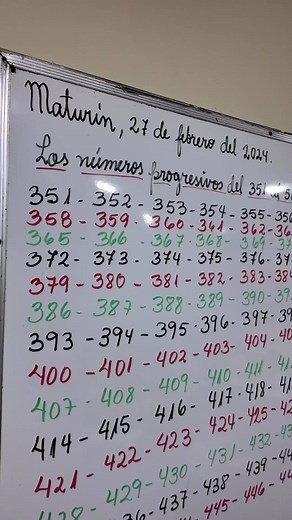 Maturín, 27 de febrero del 2024.
Los números progresivos del 351 al
351 - 352 - 353 - 354 - 355 - 356
358 - 359 - 360 - 361 - 362 - 363
365 - 366 - 367 - 368 - 369 -
372 - 373 - 374 - 375 - 376 -
379 - 380 - 381 - 382 - 383 -
386 - 387 - 388 - 389 - 390 -
393 - 394 - 395 - 396 - 397 -
400 - 401 - 402 - 403 - 404 -
407 - 408 - 409 - 410 - 411 -
414 - 415 - 416 - 417 - 418 -
421 - 422 - 423 - 424 - 425 -
428 - 429 - 430 - 431 - 432 -
437 - 438 - 439 -
445 - 446 -